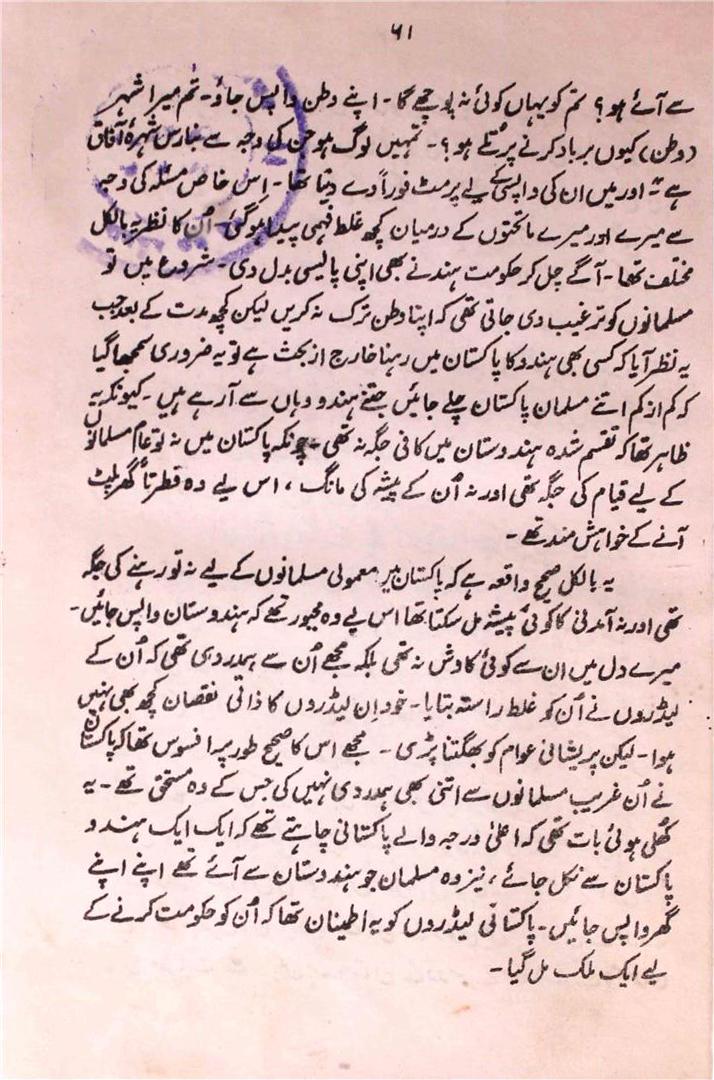 ۶۱
سے آئے ہو؟ تم کو یہاں کوئی نہ پوچھے گا۔ اپنے وطن واپس جاؤ۔ تم میرا شہر
(وطن) کیوں برباد کرنے پر تُلے ہو؟۔ تمہیں لوگ ہو جن کی وجہ سے بنارس شہرۂ آفاق
ہے" اور میں ان کی واپسی کے لیے پرمٹ فوراً دے دیتا تھا۔ اِس خاص مسئلہ کی وجہ
سے میرے اور میرے ماتحتوں کے درمیان کچھ غلط فہمی پیدا ہو گئی۔ اُن کا نظریہ بالکل
مختلف تھا۔ آگے چل کر حکومت ہند نے بھی اپنی پالیسی بدل دی۔ شروع میں تو
مسلمانوں کو ترغیب دی جاتی تھی کہ اپنا وطن ترک نہ کریں لیکن کچھ مدت کے بعد جب
یہ نظر آیا کہ کسی بھی ہندو کا پاکستان میں رہنا خارج از بحث ہے تو یہ ضروری سمجھا گیا
کہ کم از کم اتنے مسلمان پاکستان چلے جائیں جتنے ہندو وہاں سے آ رہے ہیں۔ کیونکہ یہ
ظاہر تھا کہ تقسیم شدہ ہندوستان میں کافی جگہ نہ تھی۔ چونکہ پاکستان میں نہ تو عام مسلمانوں
کے لیے قیام کی جگہ تھی اور نہ اُن کے پیشہ کی مانگ، اس لیے وہ فطرتاً گھر پلٹ
آنے کے خواہش مند تھے۔
یہ بالکل صحیح واقعہ ہے کہ پاکستان میں معمولی مسلمانوں کے لیے نہ تو رہنے کی جگہ
تھی اور نہ آمدنی کا کوئی پیشہ مل سکتا تھا اس لیے وہ مجبور تھے کہ ہندوستان واپس جائیں۔
میرے دل میں ان سے کوئی کاوش نہ تھی بلکہ مجھے اُن سے ہمدردی تھی کہ اُن کے
لیڈروں نے اُن کو غلط راستہ بتایا۔ خود اِن لیڈروں کا ذاتی نقصان کچھ بھی نہیں
ہوا۔ لیکن پریشانی عوام کو بھگتنا پڑی۔ مجھے اس کا صحیح طور پر افسوس تھا کہ پاکستان
نے اُن غریب مسلمانوں سے اتنی بھی ہمدردی نہیں کی جس کے وہ مستحق تھے۔ یہ
کھُلی ہوئی بات تھی کہ اعلیٰ درجہ والے پاکستانی چاہتے تھے کہ ایک ایک ہندو
پاکستان سے نکل جائے، نیز وہ مسلمان جو ہندوستان سے آئے تھے اپنے اپنے
گھر واپس جائیں۔ پاکستانی لیڈروں کو یہ اطمینان تھا کہ اُن کو حکومت کرنے کے
لیے ایک ملک مل گیا۔